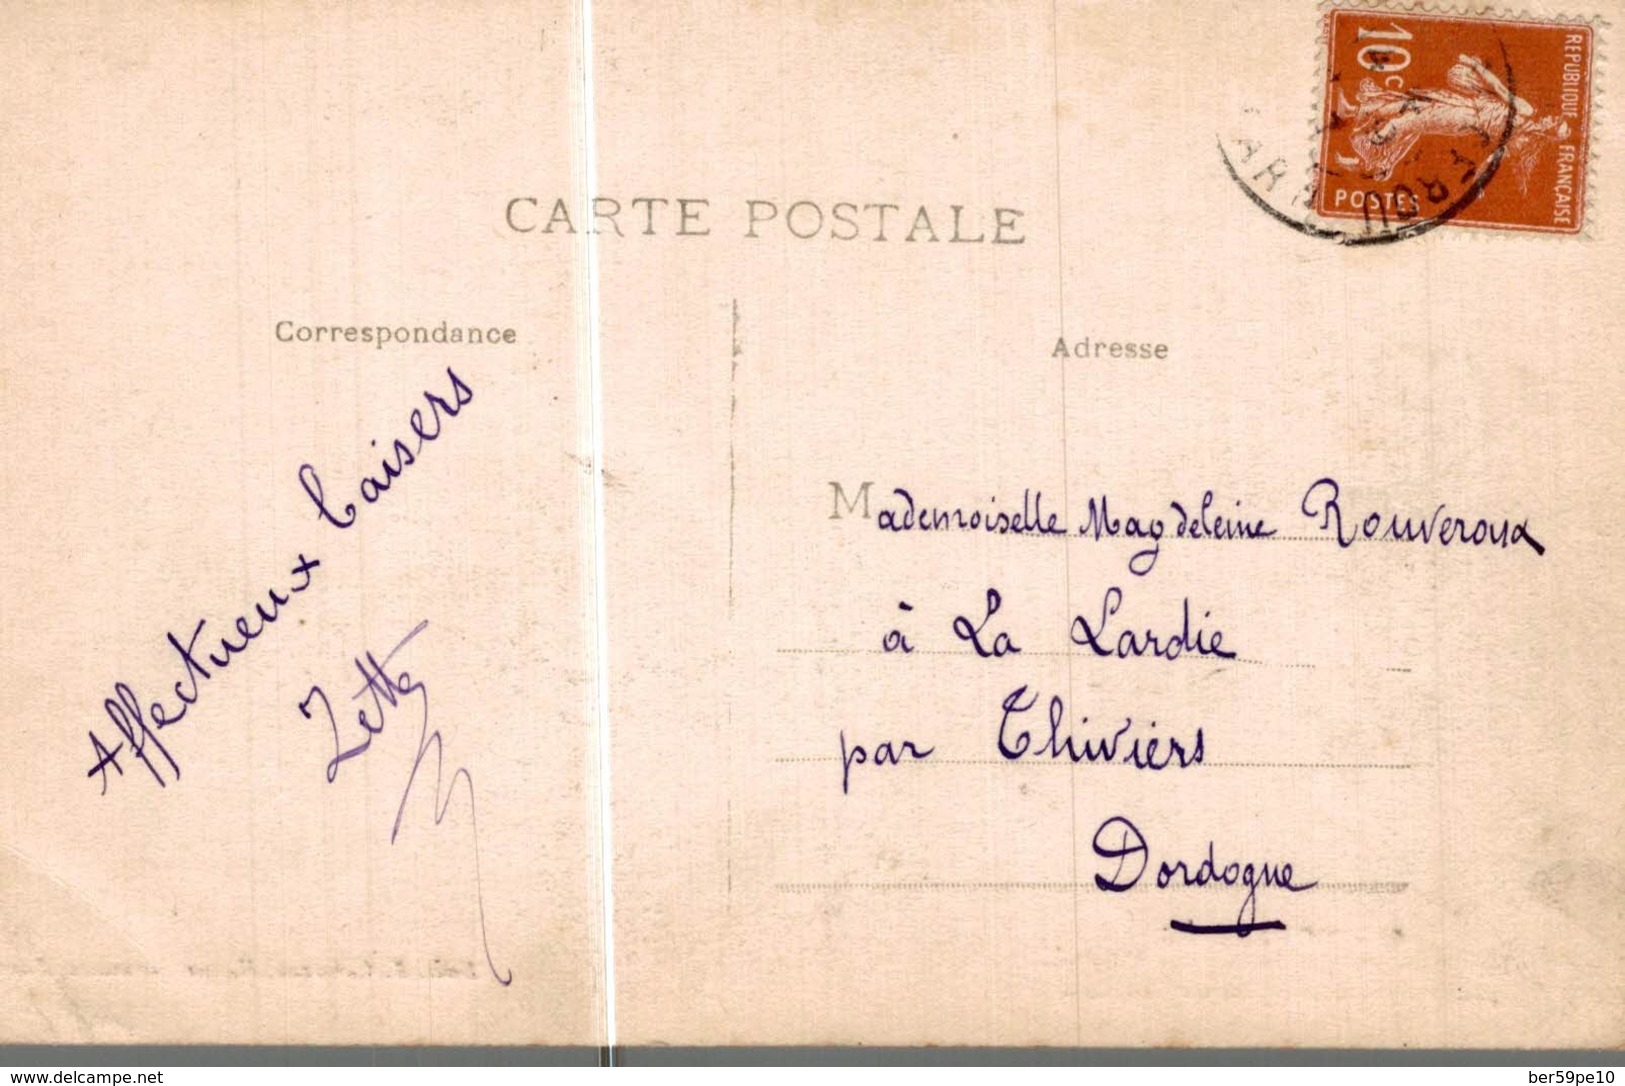 REPUBLIQUE FRANÇAISE
10c
POSTES
CARTE POSTALE
Correspondance
Adresse
Affectueux baisers
Zette
Mademoiselle Magdeleine Rouveroux
à La Lardie
par Thiviers
Dordogne
www.delcampe.net
ber59pe10